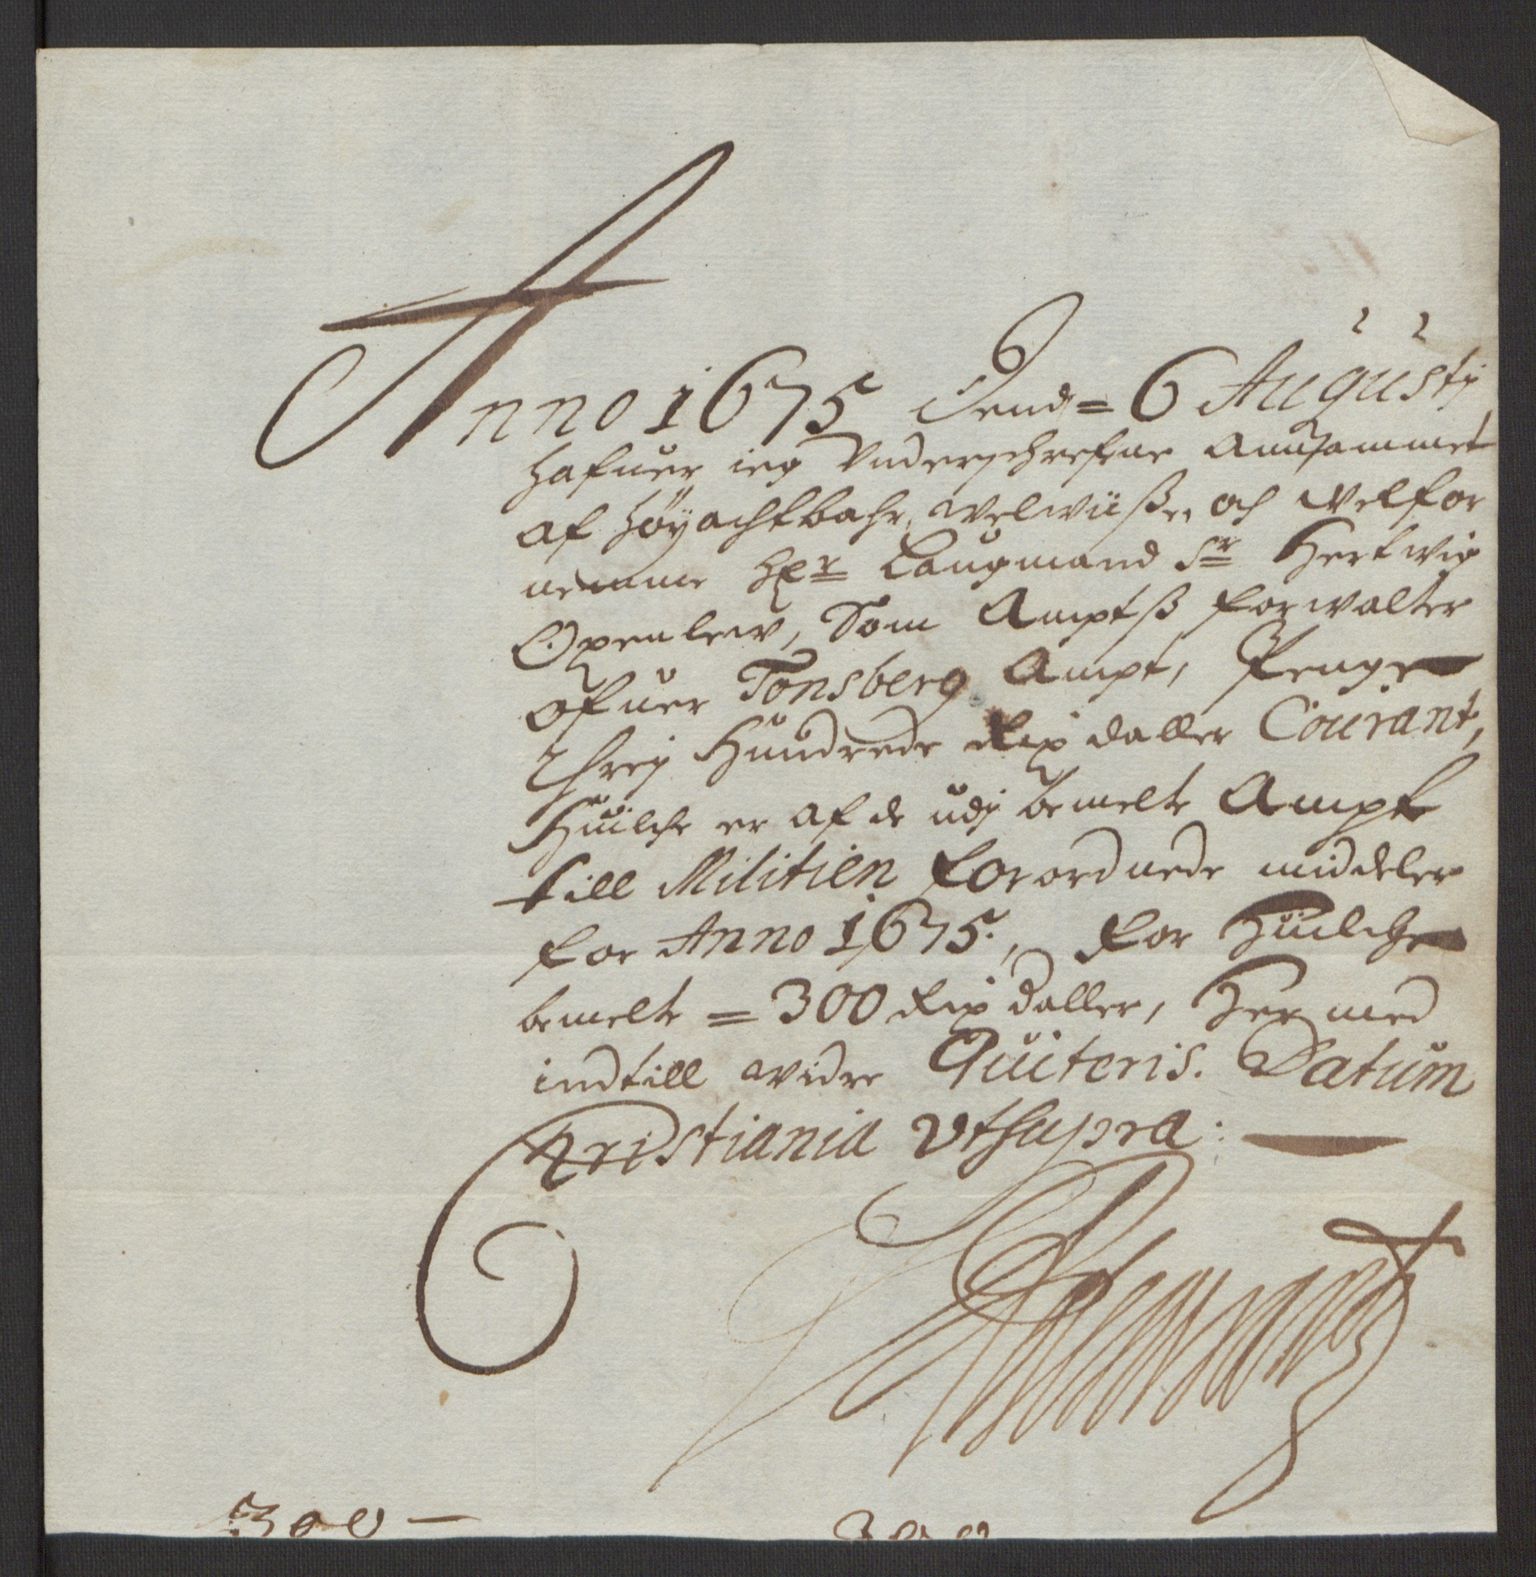 Anno 1675 Dend = 6 Augustj
hafuer ieg Vnderschrefne Annammet
af höyachtbahr, welwiisze, och velfor
nemme Hr Laugmand Sr Hertwig
Openlew, Som Amptsz forwalter
ofuer Tonsberg Ampt, Penge
Threj Hundrede Rix daller Courant,
Huilche er af de udj bemelte Ampt
till Militien forordnede middeler
for Anno 1675., for Huilche
bemelte = 300 Rix daller, Hermed
indtill widre Quiteris. Datum
Christiania Vtsupra:
300 — 300